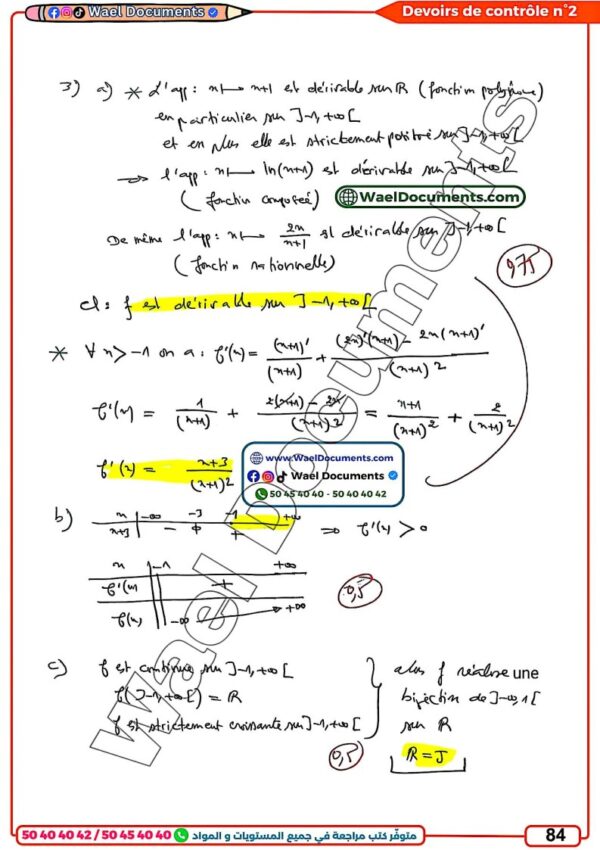 Wael Documents
Devoirs de contrôle n°2
3) a) * L'app : x ⟼ x+1 est dérivable sur ℝ (fonction polynôme)
en particulier sur ]-1,+∞[
et en plus elle est strictement positive sur ]-1,+∞[
⟹ l'app : x ⟼ ln(x+1) est dérivable sur ]-1,+∞[
(fonction composée)
WaelDocuments.com
De même l'app : x ⟼ 2x/(x+1) est dérivable sur ]-1,+∞[
(fonction rationnelle)
cl : f est dérivable sur ]-1,+∞[
* ∀ x > -1 on a : f'(x) = (x+1)'/(x+1) + ((2x)'(x+1) - 2x(x+1)')/(x+1)²
f'(x) = 1/(x+1) + (2(x+1) - 2x)/(x+1)² = (x+1)/(x+1)² + 2/(x+1)²
f'(x) = (x+3)/(x+1)²
www.WaelDocuments.com
Wael Documents
50 45 40 40 - 50 40 40 42
b) x -∞ -3 -1 +∞
x+3 - 0 + ⟹ f'(x) > 0
x -1 +∞
f'(x) +
f(x) -∞ +∞
0,5
c) f est continue sur ]-1,+∞[
f(]-1,+∞[) = ℝ
f est strictement croissante sur ]-1,+∞[
alors f réalise une
bijection de ]-∞,1[
sur ℝ
ℝ = J
0,5
Wael Documents
50 40 40 42 / 50 45 40 40 متوفّر كتب مراجعة في جميع المستويات و المواد
84